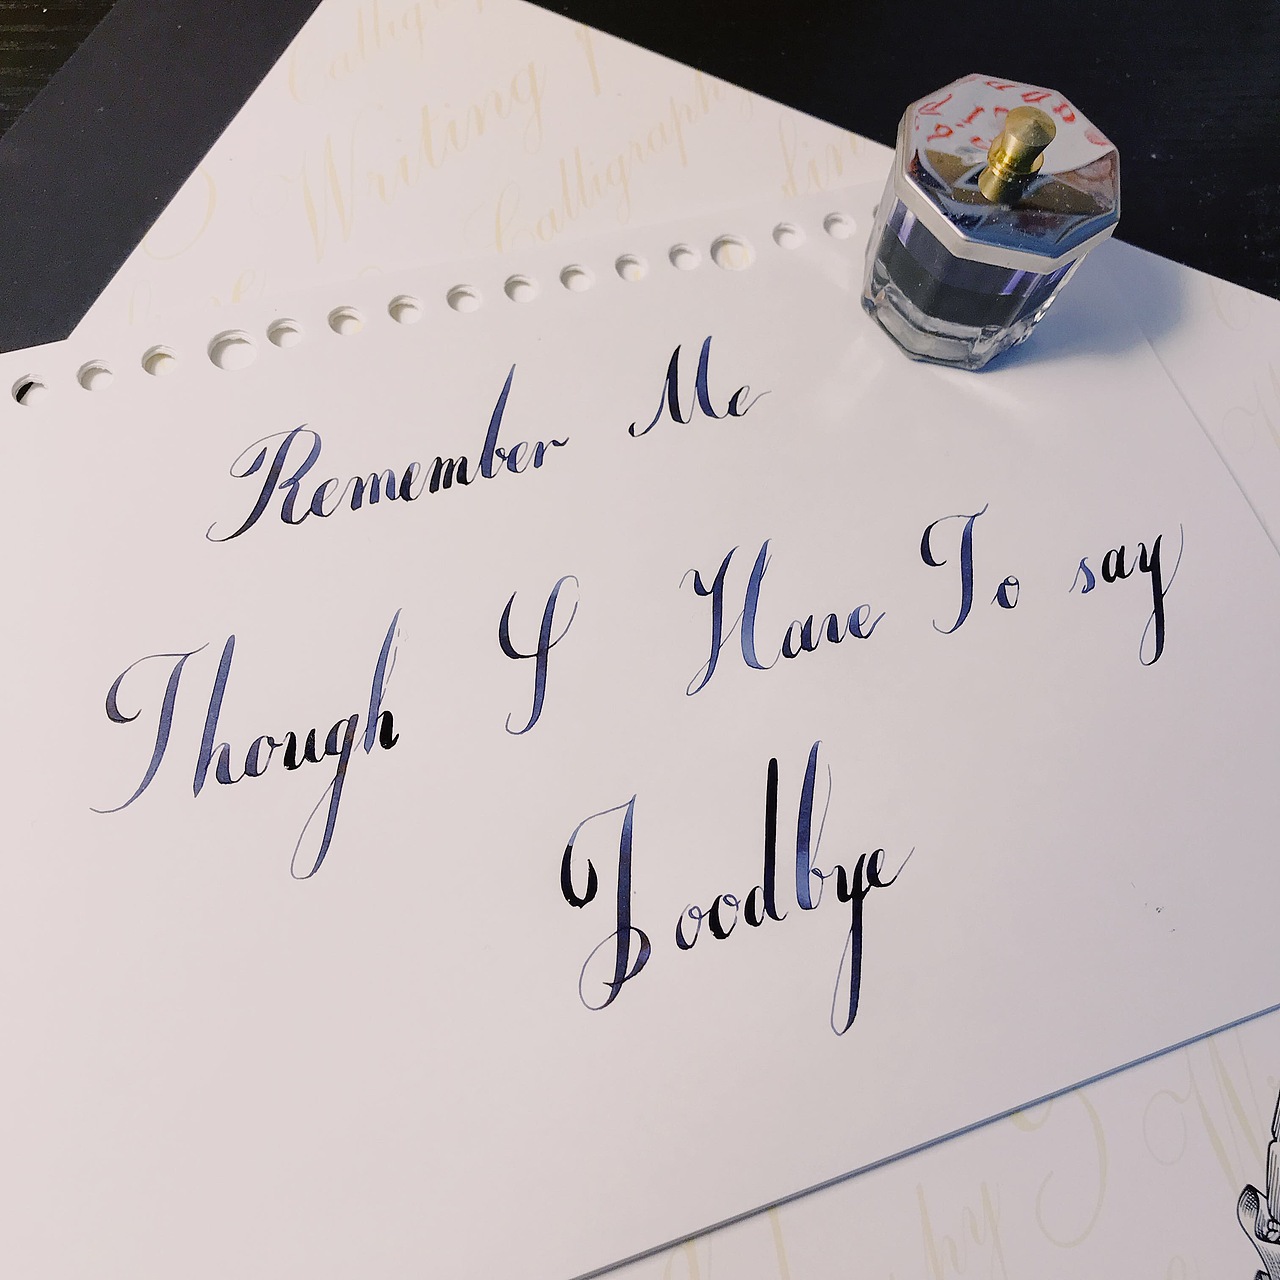 Calligraphy
Writing
Calligraphy
Remember Me
Though I Have To say
Goodbye
by